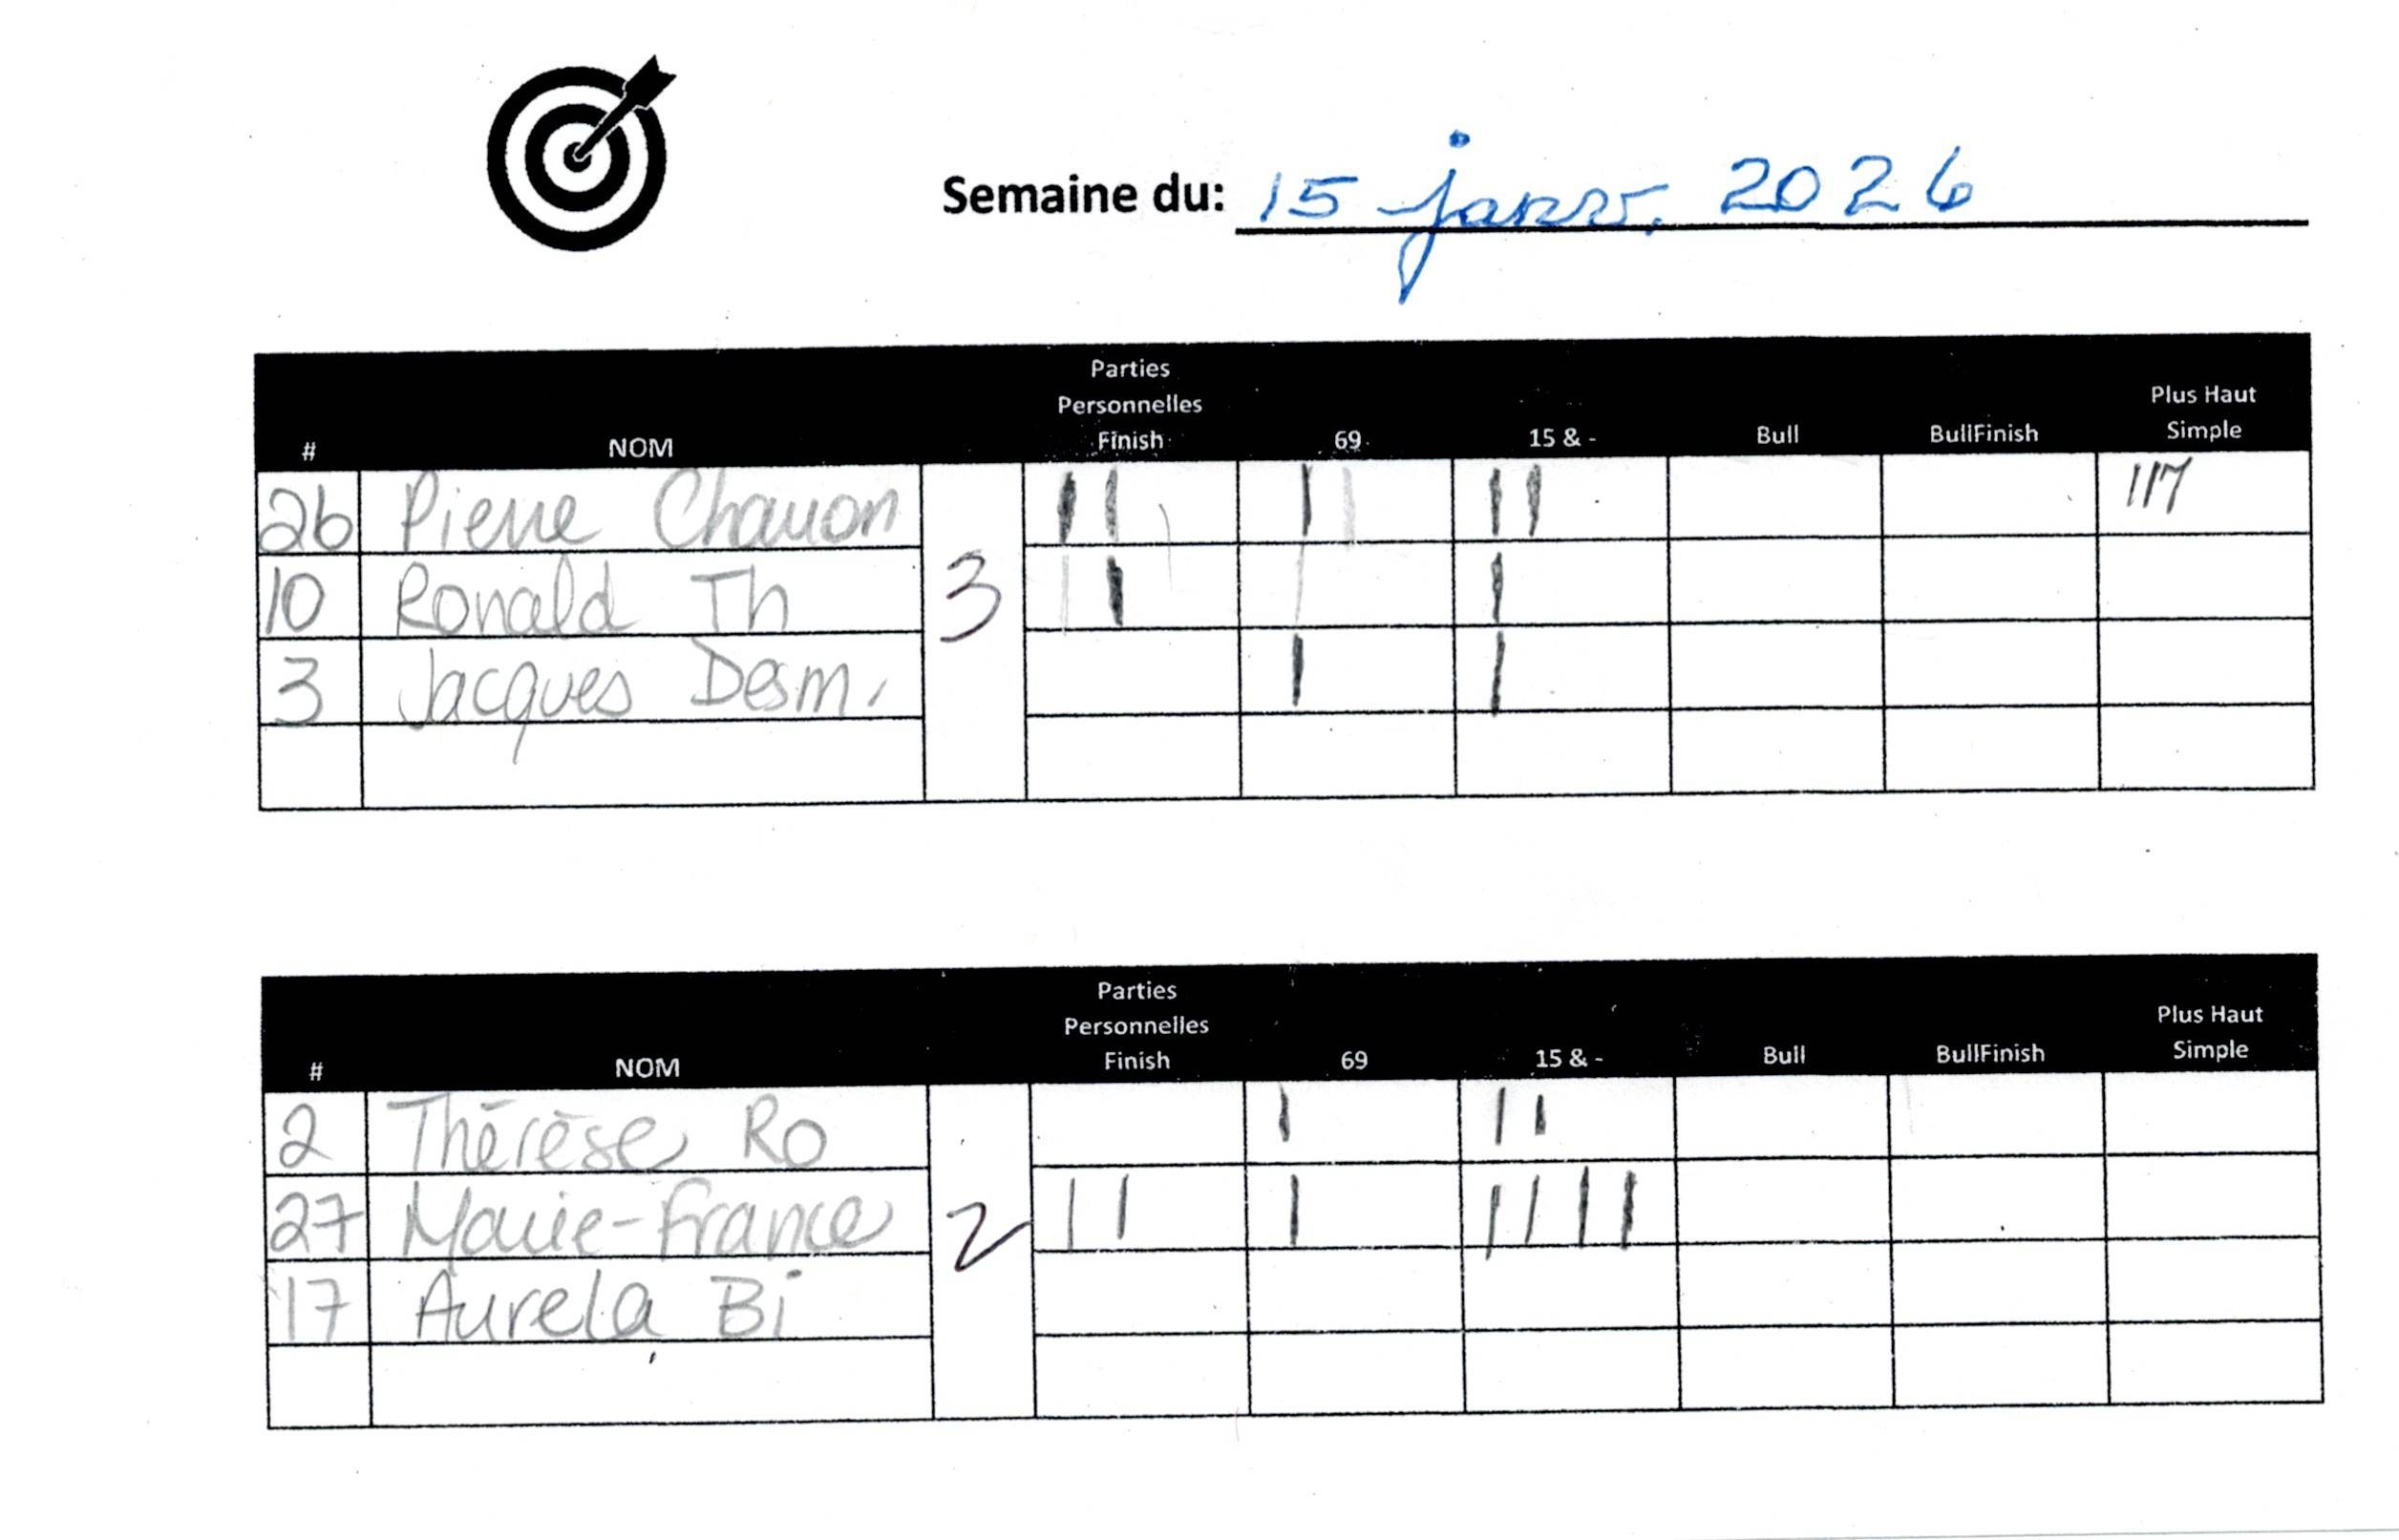 Semaine du: 15 janv. 2026
Parties
Personnelles
Plus Haut
# NOM Finish 69 15 & - Bull BullFinish Simple
26 Pierre Chauon || | || 117
10 Ronald Th | |
3
3 Jacques Desm. | |
Parties
Personnelles
Plus Haut
# NOM Finish 69 15 & - Bull BullFinish Simple
2 Thérèse Ro | ||
27 Marie-France 2 || | ||||
17 Aurela Bi